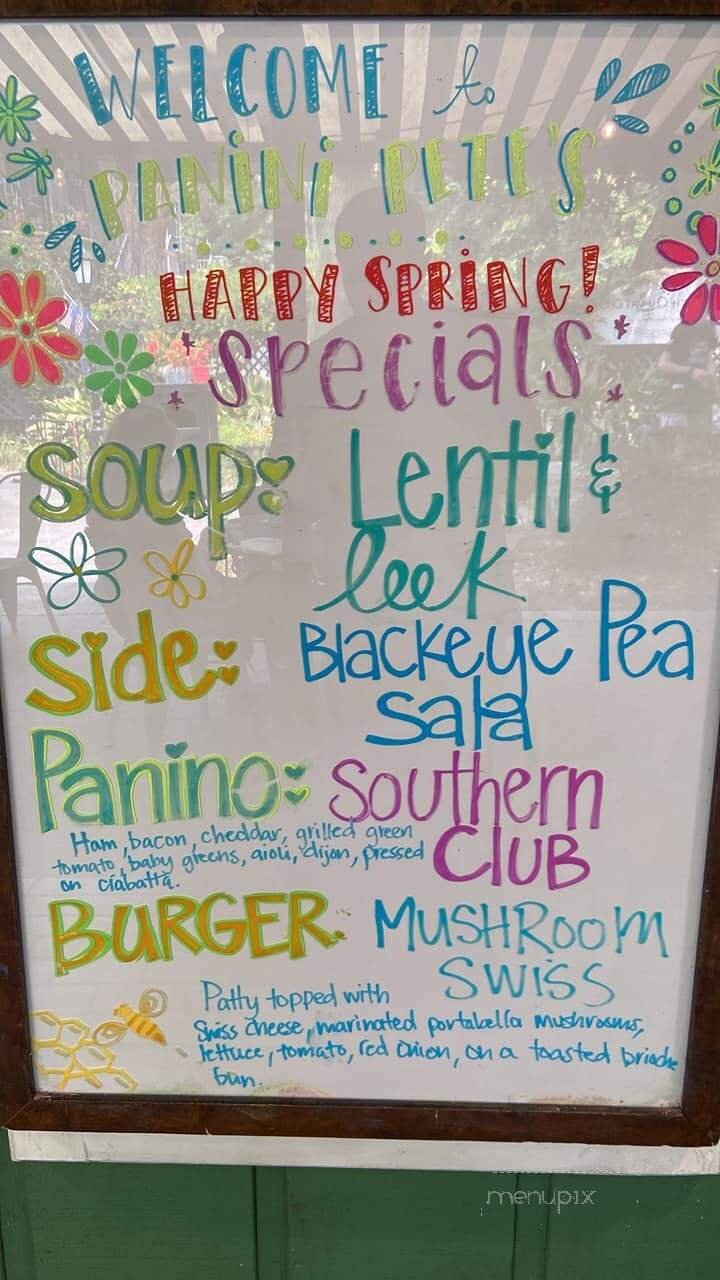 WELCOME to
PANiNi PETE'S
HAPPY SPRiNG!
specials
Soup: Lentil &
leek
Side: Blackeye Pea
Sala
Panino: Southern
Club
Ham, bacon, cheddar, grilled green
tomato, baby greens, aioli, dijon, pressed
on ciabatta.
BURGER. MUSHRooM
SWiSS
Patty topped with
Swiss cheese, marinated portabella mushrooms,
lettuce, tomato, red onion, on a toasted brioche
bun.
menupix